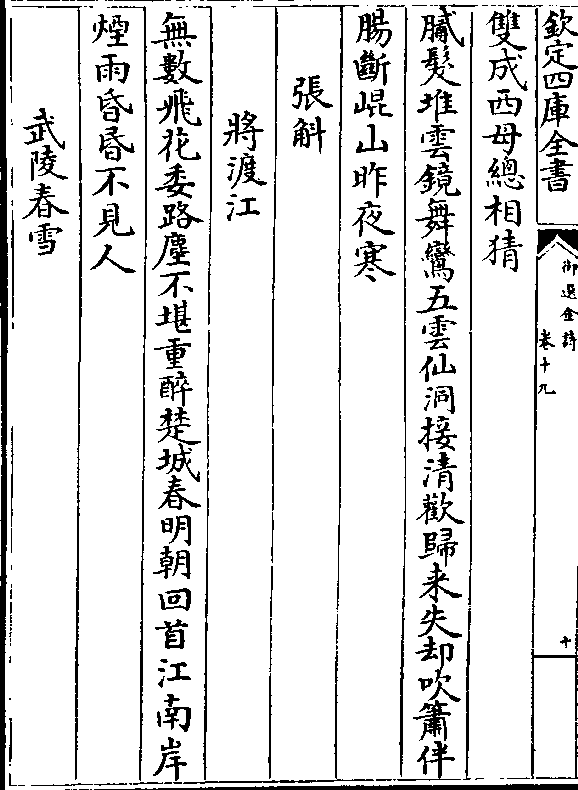 欽定四庫全書
御選金詩
卷十九
十
雙成西母總相猜
膩髮堆雲鏡舞鸞五雲仙洞接清歡歸来失却吹簫伴
腸斷崐山昨夜寒
張斛
將渡江
無數飛花委路塵不堪重醉楚城春明朝回首江南岸
煙雨昏昏不見人
武陵春雪